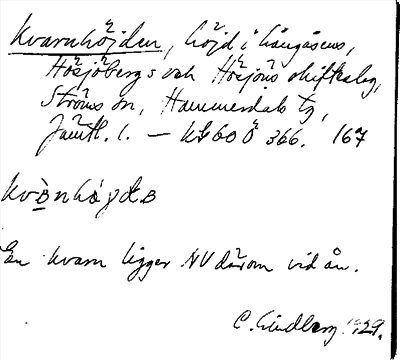 Kvarnhöjden, höjd i Långåsens,
Högsjöbergs och Högsjöns skifteslag,
Ströms sn, Hammerdals tg,
Jämtl. l. — kbl 60 Ö 366. 167
En kvarn ligger NV därom vid ån.
C. Lindberg 1929.